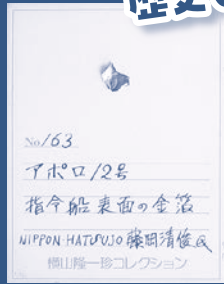 歴史
No/63
アポロ12号
指令船表面の金箔
NIPPON HATUJO 藤岡清俊氏
横山隆一珍コレクション